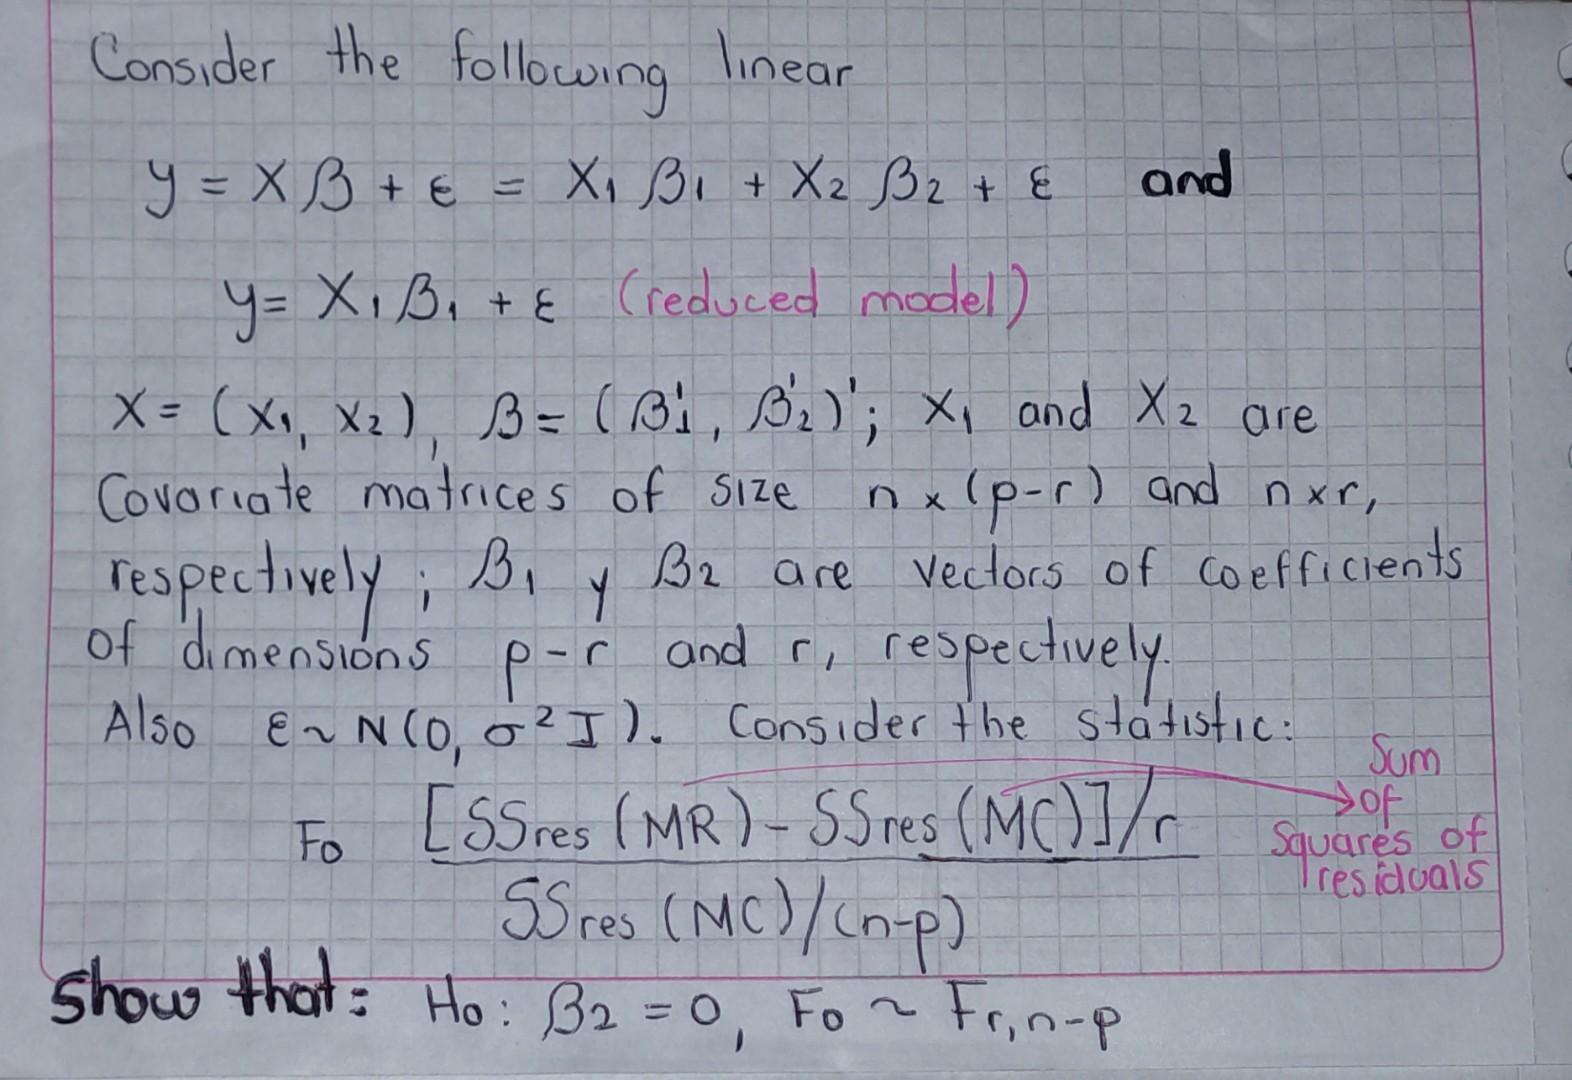 Consider the following linear
y = Xβ + ε = X₁ β₁ + X₂ β₂ + ε and
y = X₁ β₁ + ε (reduced model)
X = (X₁, X₂), β = (β'₁, β'₂)'; X₁ and X₂ are
Covariate matrices of size n x (p-r) and n x r,
respectively; β₁ y β₂ are vectors of coefficients
of dimensions p-r and r, respectively.
Also ε ~ N(0, σ² I). Consider the statistic:
F₀ [SSres (MR) - SSres (MC)]/r
SSres (MC)/(n-p)
Sum
of
Squares of
residuals
Show that: H₀: β₂ = 0, F₀ ~ Fr,n-p